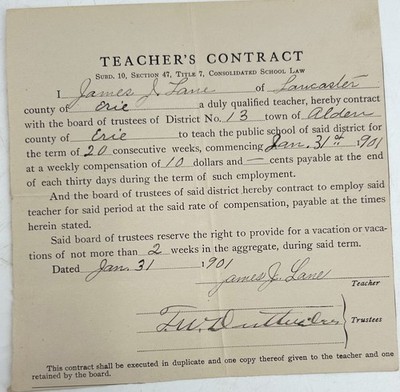 TEACHER'S CONTRACT
SUBD. 10, SECTION 47, TITLE 7, CONSOLIDATED SCHOOL LAW
I James J. Lane of Lancaster
county of Erie a duly qualified teacher, hereby contract
with the board of trustees of District No. 13 town of Alden
county of Erie to teach the public school of said district for
the term of 20 consecutive weeks, commencing Jan. 31st 1901
at a weekly compensation of 10 dollars and — cents payable at the end
of each thirty days during the term of such employment.
And the board of trustees of said district hereby contract to employ said
teacher for said period at the said rate of compensation, payable at the times
herein stated.
Said board of trustees reserve the right to provide for a vacation or vaca-
tions of not more than 2 weeks in the aggregate, during said term.
Dated Jan. 31 1901
James J. Lane
Teacher
Trustees
This contract shall be executed in duplicate and one copy thereof given to the teacher and one
retained by the board.